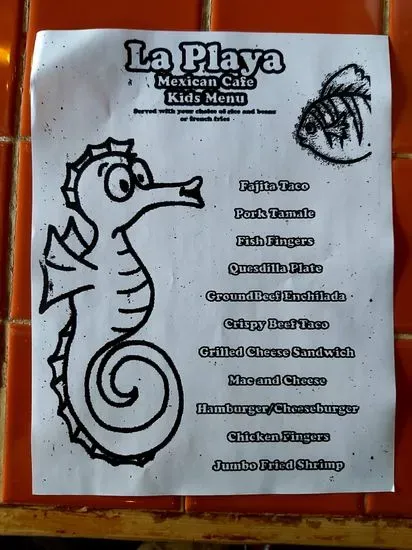 La Playa
Mexican Cafe
Kids Menu
Served with your choice of rice and beans
or french fries
Fajita Taco
Pork Tamale
Fish Fingers
Quesdilla Plate
GroundBeef Enchilada
Crispy Beef Taco
Grilled Cheese Sandwich
Mac and Cheese
Hamburger/Cheeseburger
Chicken Fingers
Jumbo Fried Shrimp